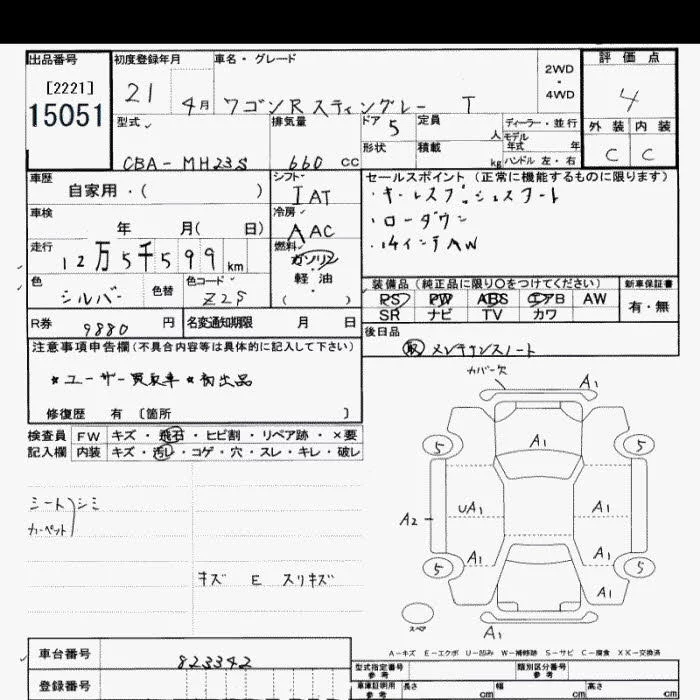 出品番号
[2221]
15051
初度登録年月
21
4月
車名・グレード
ワゴンR スティングレー T
2WD
・
4WD
評価点
4
外装 内装
C C
型式
CBA-MH23S
排気量
660 cc
ドア
5
形状
定員
人
積載
kg
ディーラー・並行
モデル
年式 年
ハンドル 左・右
車歴
自家用・( )
シフト
IAT
セールスポイント (正常に機能するものに限ります)
・キーレスプッシュスタート
・ローダウン
・14インチAW
車検
年 月( 日)
冷房
AAC
走行
12万5千599km
燃料
ガソリン
軽油
( )
色
シルバー
色替
色コード
Z2S
装備品 (純正品に限り○をつけてください)
PS PW ABS エアB AW
SR ナビ TV カワ
新車保証書
有・無
R券
9880 円
名変通知期限 月 日
後日品
取 メンテナンスノート
注意事項申告欄(不具合内容等は具体的に記入して下さい)
★ユーザー買取車 ★初出品
修復歴 有 〔箇所 〕
検査員
記入欄
FW キズ・飛石・ヒビ割・リペア跡・×要
内装 キズ・汚レ・コゲ・穴・スレ・キレ・破レ
シート
カーペット
シミ
キズ E スリキズ
カバー欠
A1
A1
5
5
A2
UA1
A1
A1
A1
5
5
A1
A1
スペア
A-キズ E-エクボ U-凹み W-補修跡 S-サビ C-腐食 XX-交換済
車台番号
823342
登録番号
型式指定番号
参考
類別区分番号
参考
車庫証明用
参考
長さ cm
幅 cm
高さ cm